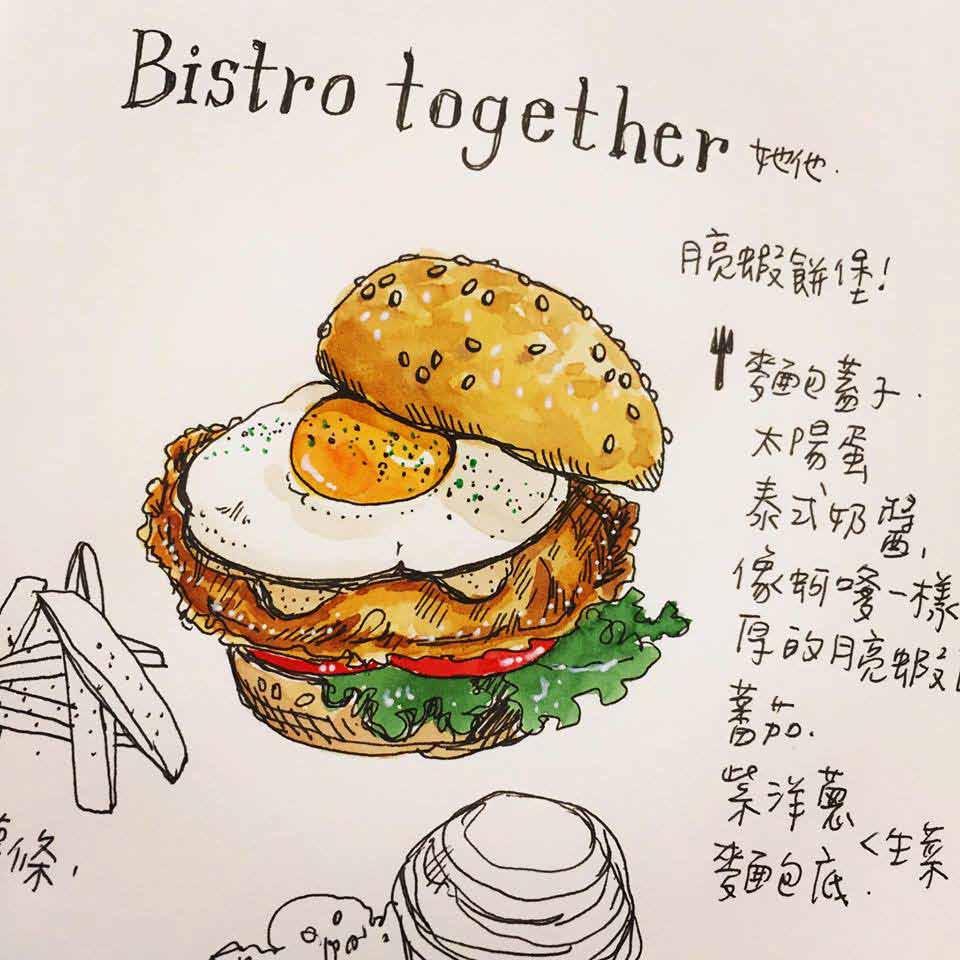 Bistro together 她他.
月亮蝦餅堡!
麵包蓋子.
太陽蛋
泰式奶醬,
像蚵嗲一樣
厚的月亮蝦
蕃茄.
紫洋蔥
<生菜
麵包底.
條,